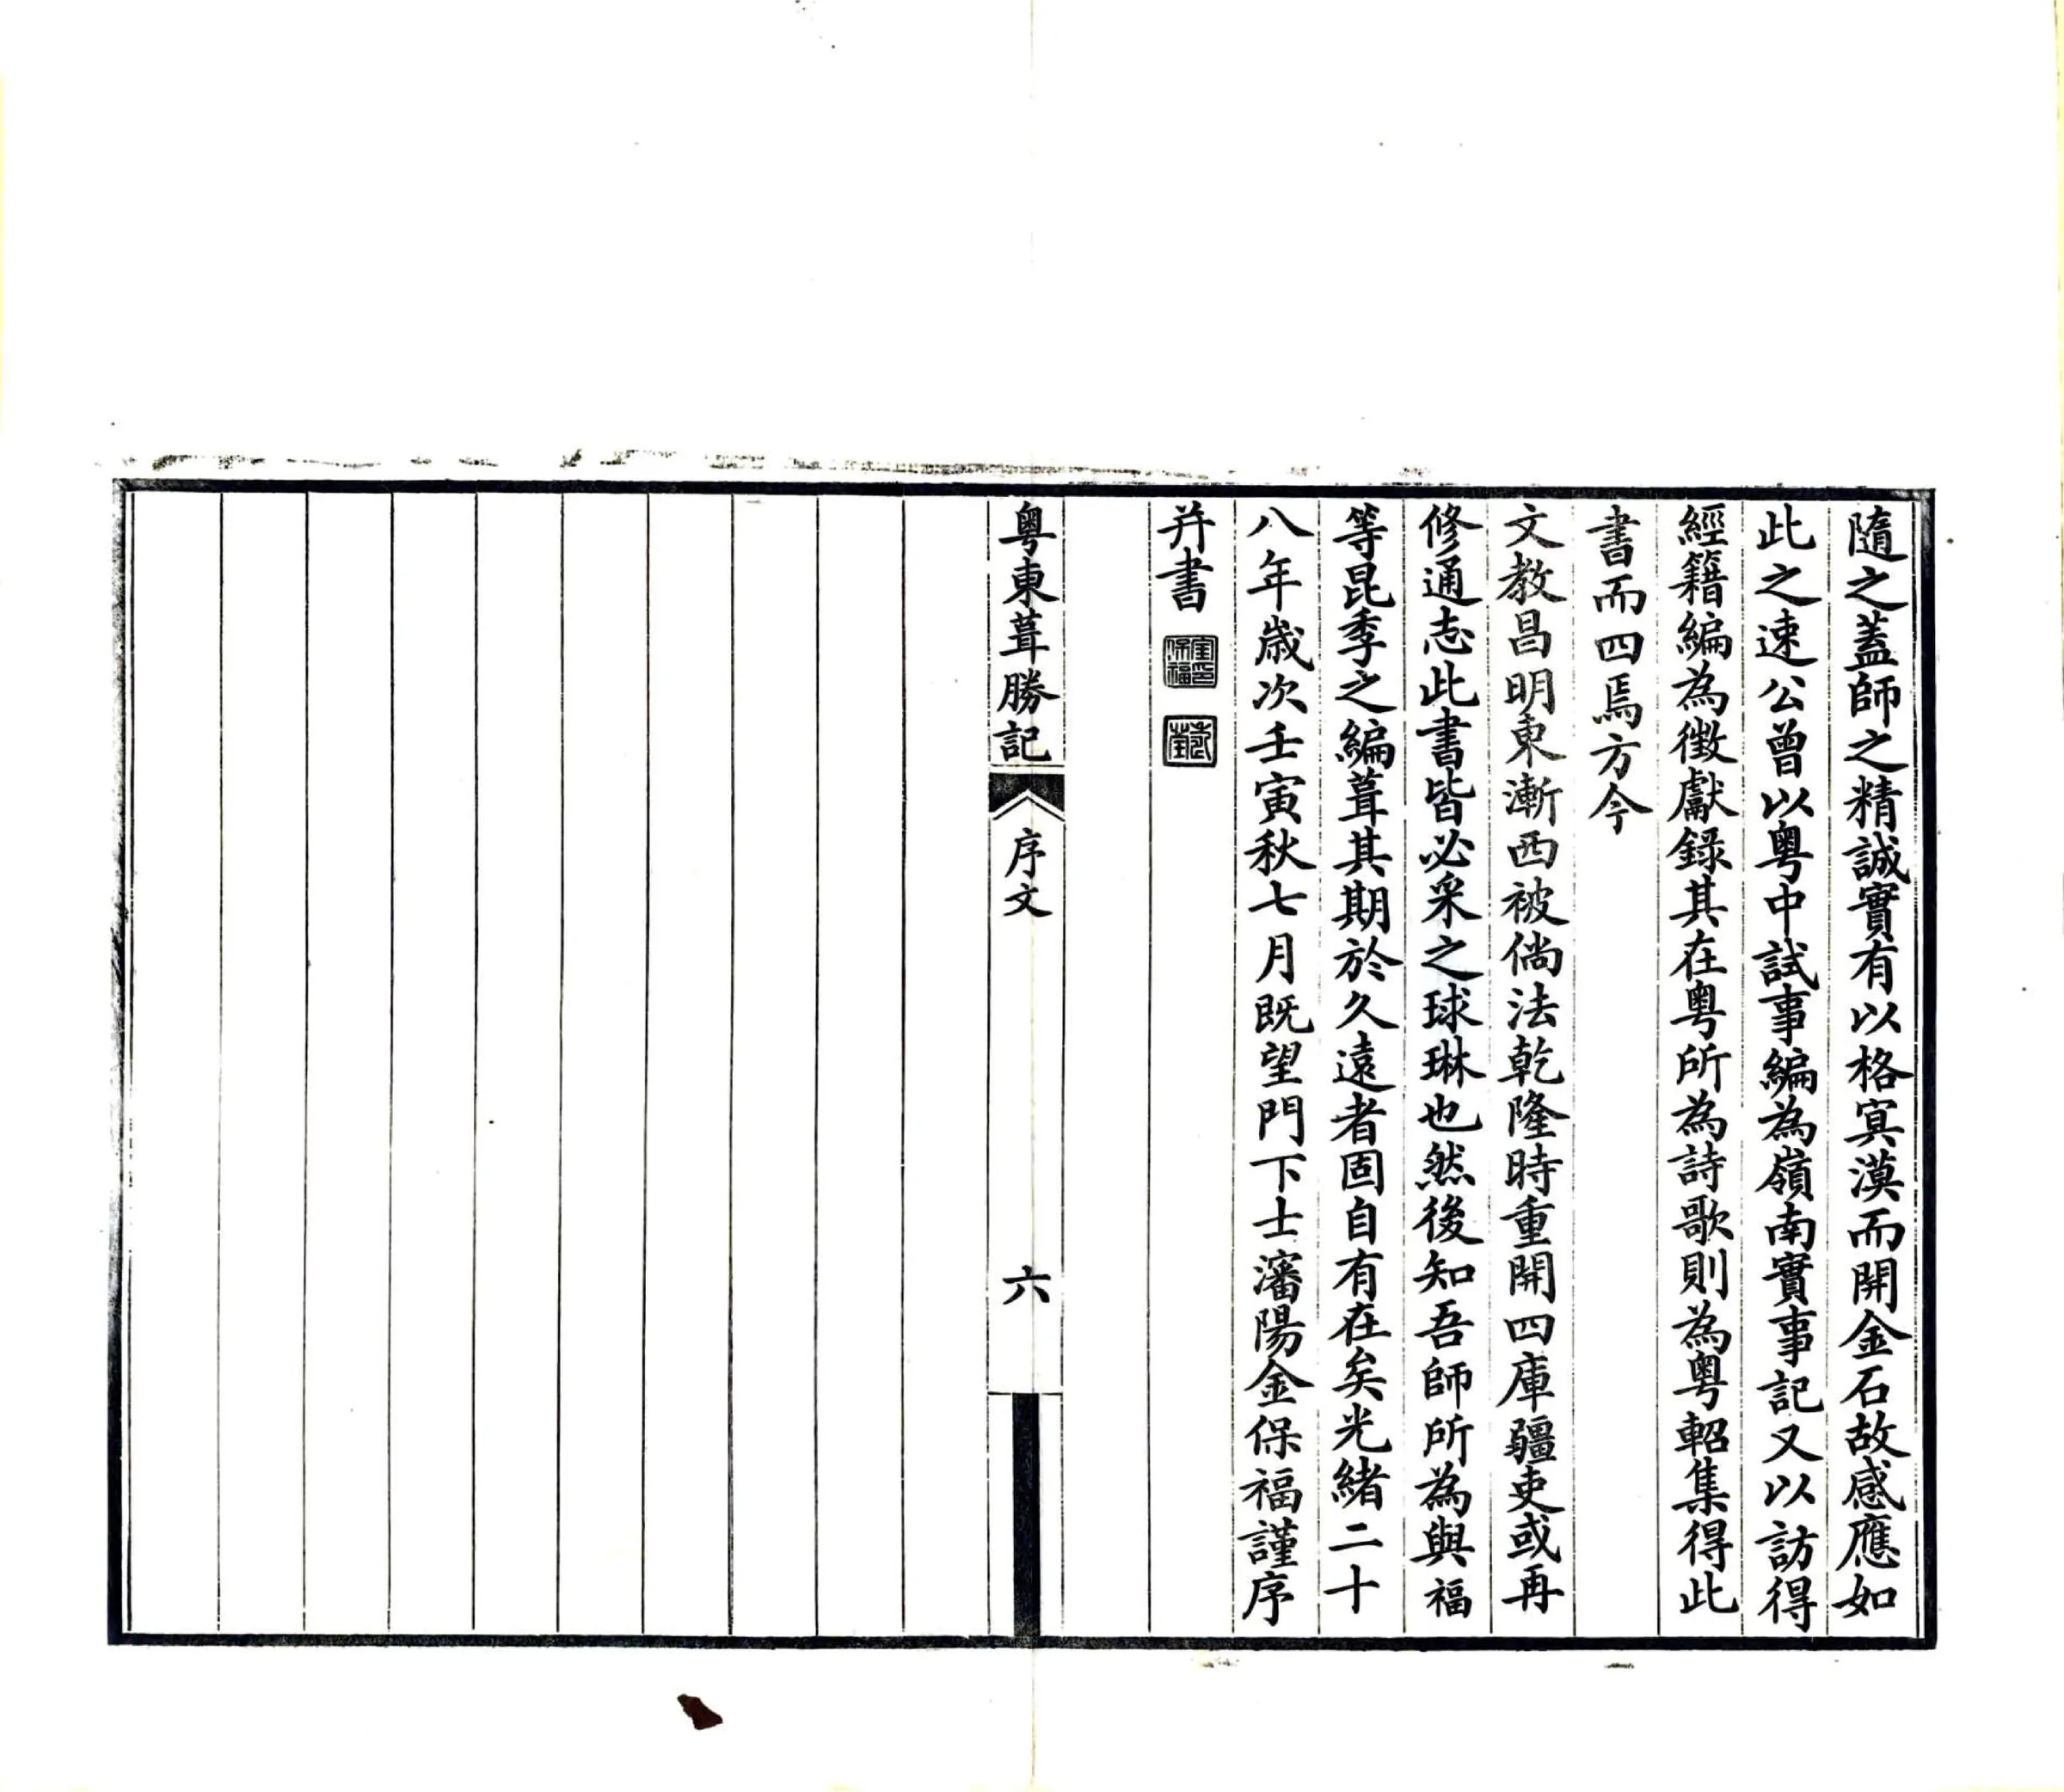 隨之蓋師之精誠實有以格寞漠而開金石故感應如
此之速公曾以粵中試事編為嶺南實事記又以訪得
經籍編為徵獻錄其在粵所為詩歌則為粵軺集得此
書而四焉方今
文教昌明東漸西被倘法乾隆時重開四庫疆吏或再
修通志此書皆必采之球琳也然後知吾師所為與福
等昆季之編葺其期於久遠者固自有在矣光緒二十
八年歲次壬寅秋七月既望門下士瀋陽金保福謹序
并書
粵東葺勝記
序文
六